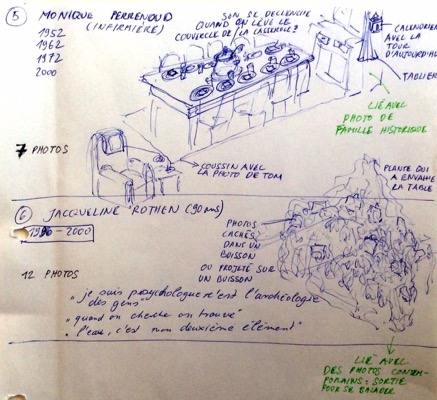 ⑤ MONIQUE PERRENOUD
(INFIRMIÈRE)
1952
1962
1972
2000
7 PHOTOS
SON SE DECLENCHE
QUAND ON LÈVE LE
COUVERCLE DE LA CASSEROLE?
CALENDRIER
AVEC LA
TOUR
D'AUJOURD'HUI
TABLIER
LIÉ AVEC
PHOTO DE
FAMILLE HISTORIQUE
COUSSIN AVEC
LA PHOTO DE TOM
⑥ JACQUELINE ROTHEN (90 ans)
1990-2000
12 PHOTOS
PHOTOS
CACHÉS
DANS UN
BUISSON
OU PROJETÉ SUR
UN BUISSON
PLANTE QUI
A ENVAHIE
LA TABLE
"je suis psychologue c'est l'archéologie
des gens"
"quand on cherche on trouve"
"l'eau, c'est mon deuxième élément"
LIÉ AVEC
DES PHOTOS CONTEM-
PORAINS: SORTIE
POUR SE BALADER